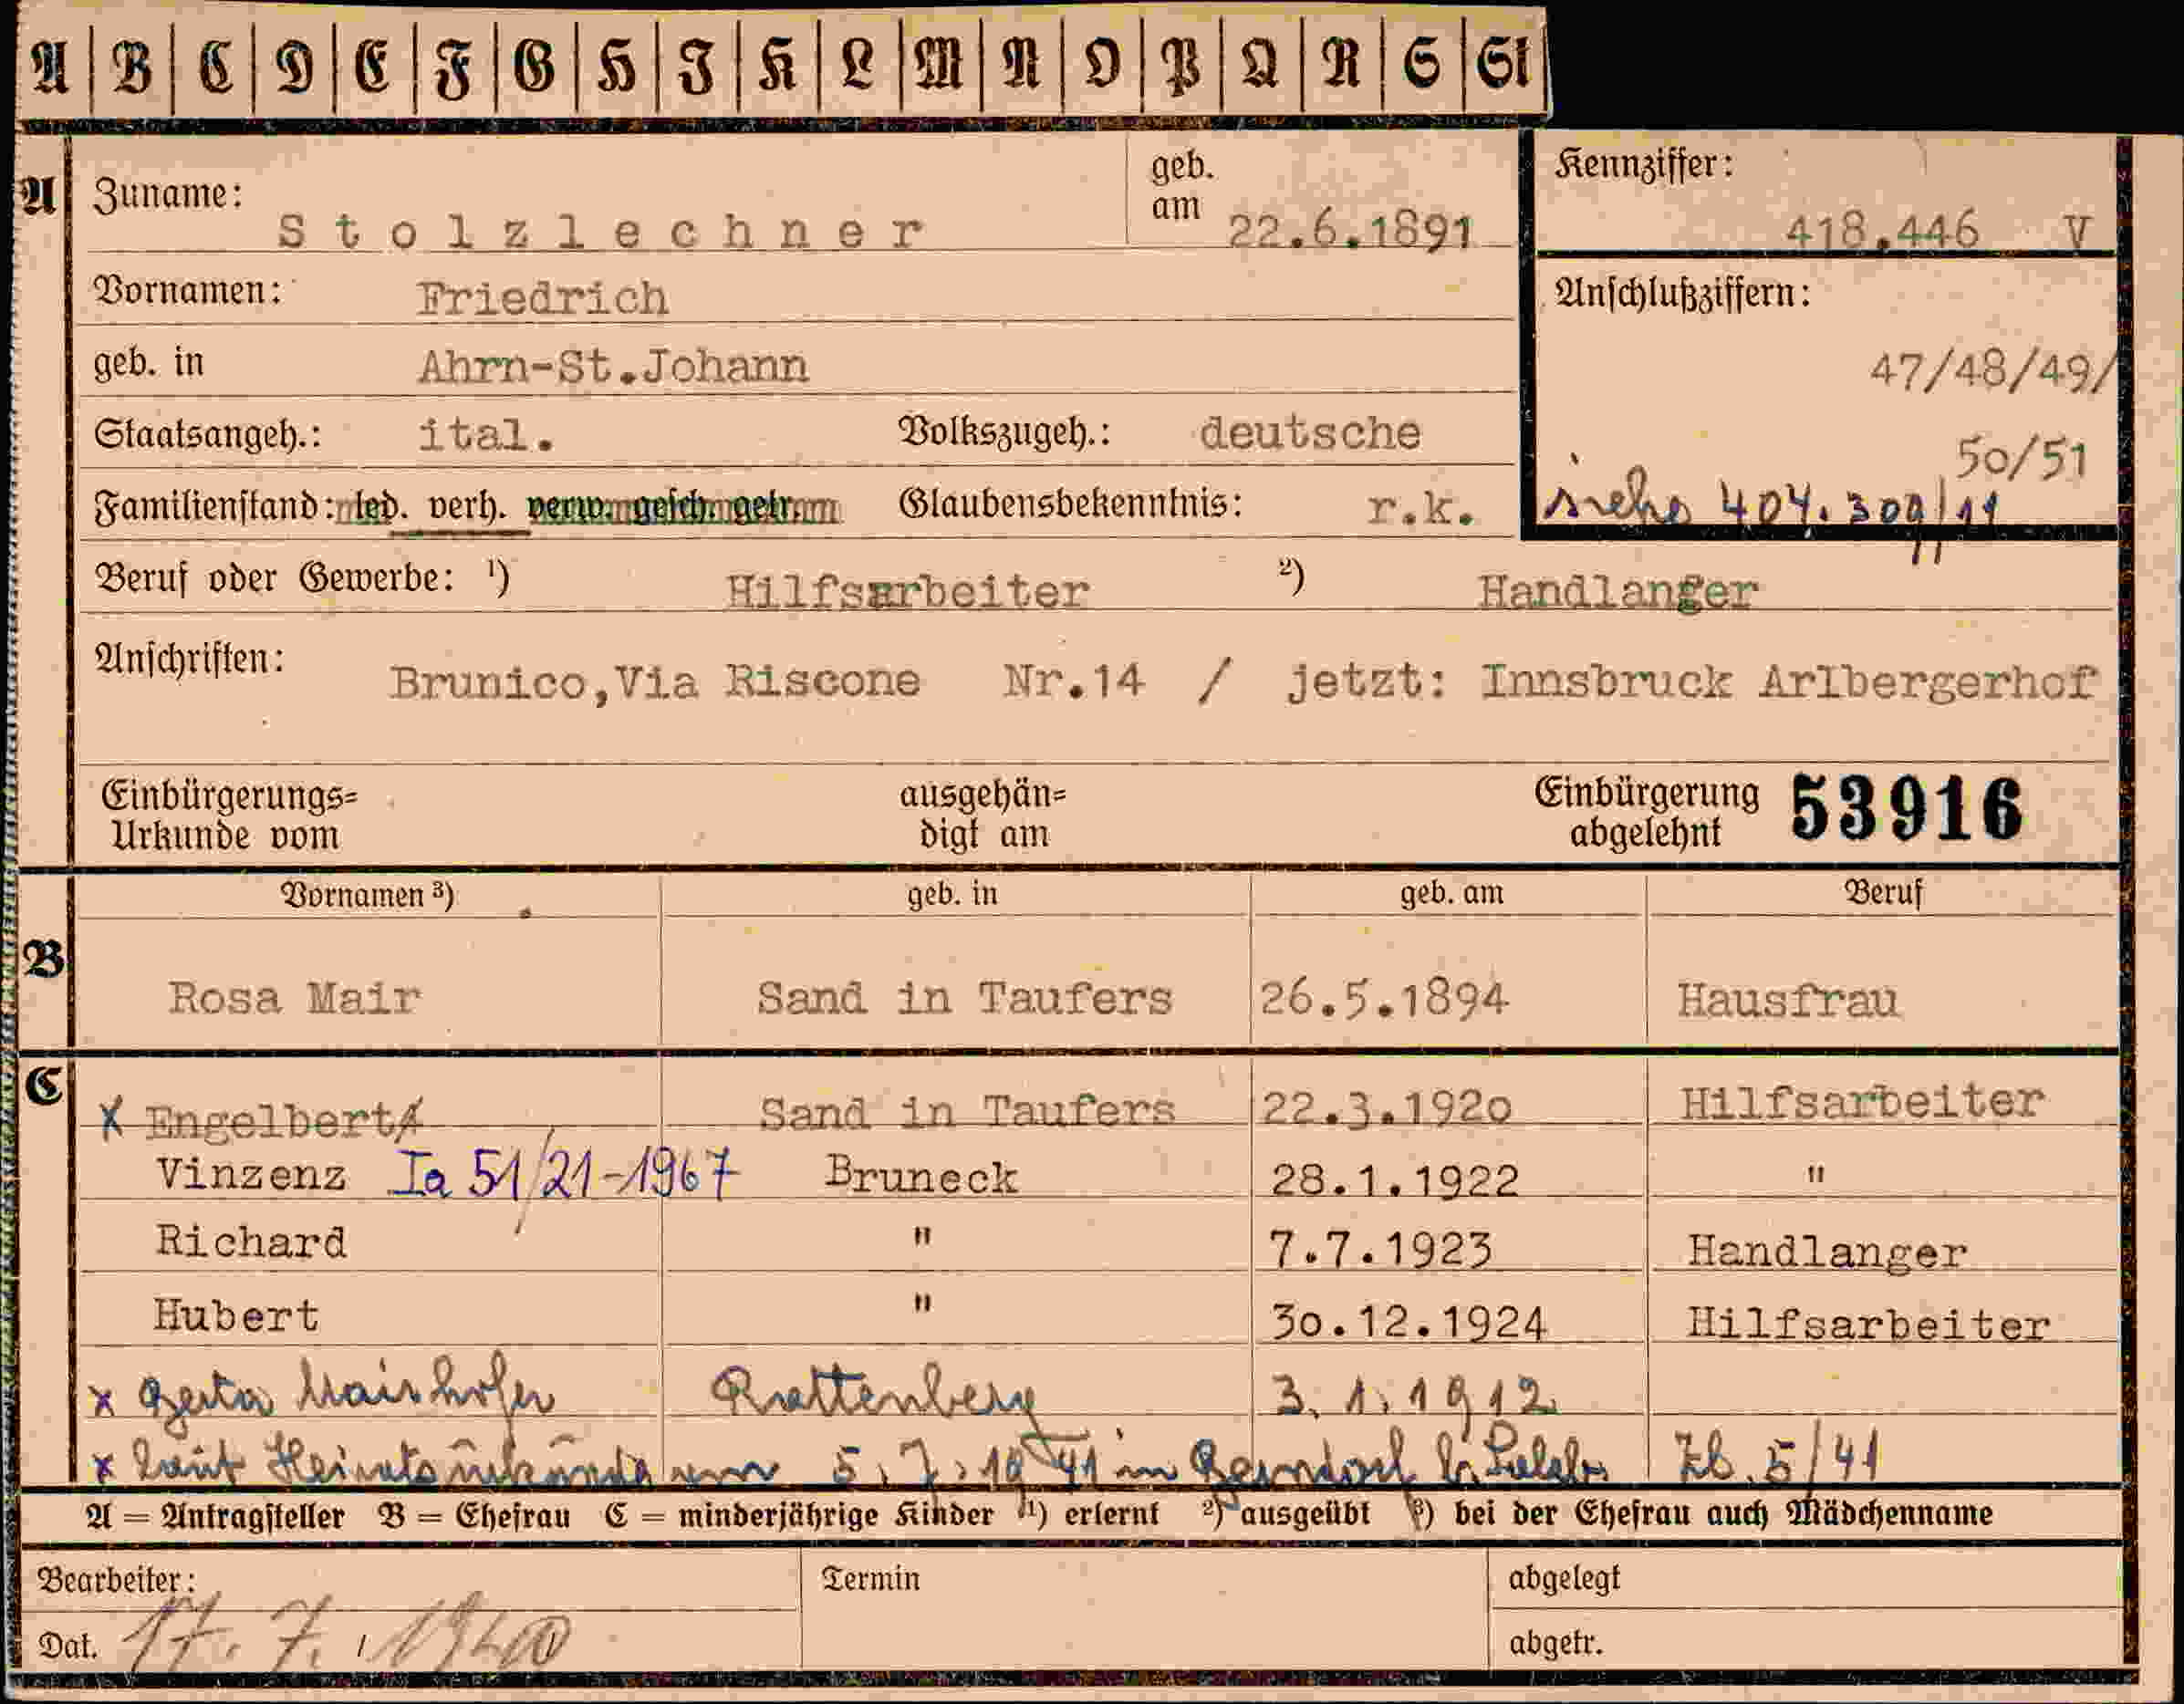 A B C D E F G H I K L M N O P Q R S St
A Zuname: Stolzlechner geb. am 22.6.1891 Kennziffer: 418.446 V
Vornamen: Friedrich Anschlußziffern:
geb. in Ahrn-St.Johann 47/48/49/
Staatsangeh.: ital. Volkszugeh.: deutsche 50/51
Familienstand: led. verh. verw. gesch. getr. Glaubensbekenntnis: r.k. siehe 404.309/11
Beruf oder Gewerbe: ¹) Hilfsarbeiter ²) Handlanger
Anschriften: Brunico,Via Riscone Nr.14 / jetzt: Innsbruck Arlbergerhof
Einbürgerungs= ausgehän= Einbürgerung 53916
Urkunde vom digt am abgelehnt
Vornamen ³) geb. in geb. am Beruf
B Rosa Mair Sand in Taufers 26.5.1894 Hausfrau
C x Engelbert Sand in Taufers 22.3.1920 Hilfsarbeiter
Vinzenz Ia 51/21-1967 Bruneck 28.1.1922 "
Richard " 7.7.1923 Handlanger
Hubert " 30.12.1924 Hilfsarbeiter
x Rattenberg 3.1.1912
x laut Heiratsurkunde vom 5.7.1941 in 5/41
A = Antragsteller B = Ehefrau C = minderjährige Kinder ¹) erlernt ²) ausgeübt ³) bei der Ehefrau auch Mädchenname
Bearbeiter: Termin abgelegt
Dat. 17.7.1940 abgetr.